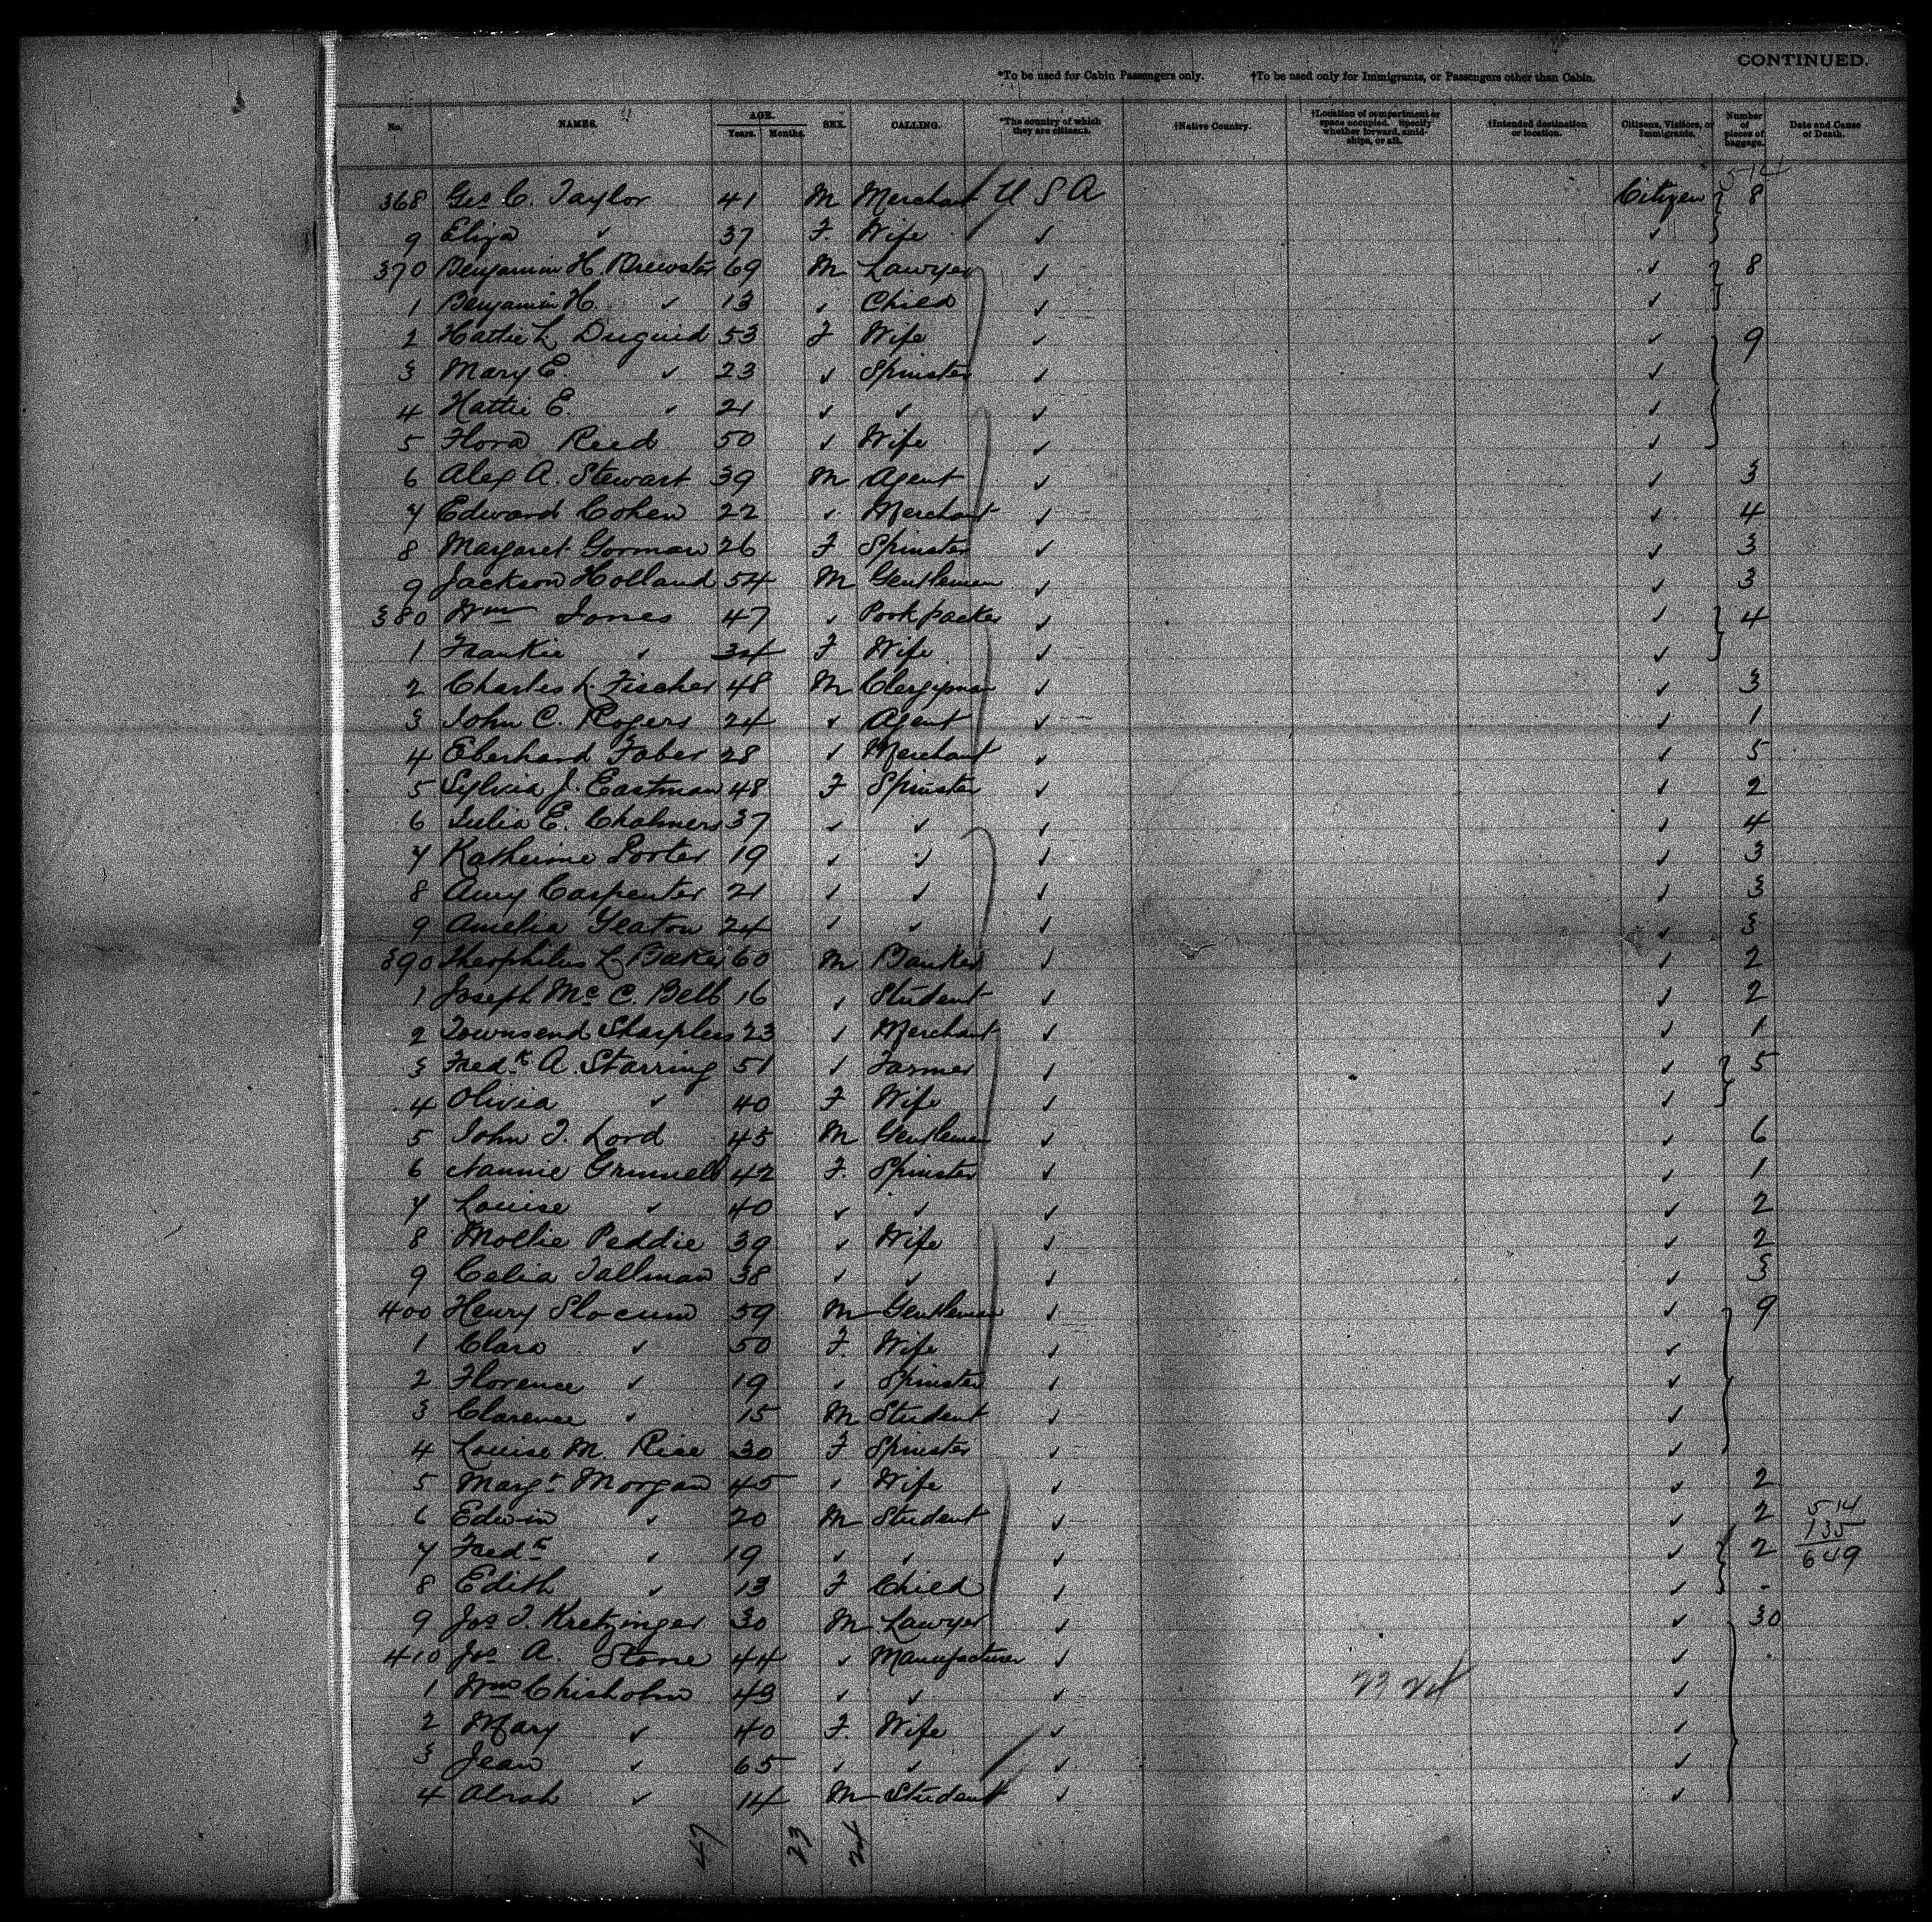 CONTINUED.
*To be used for Cabin Passengers only. †To be used only for Immigrants, or Passengers other than Cabin.
No. NAMES. AGE. Years. Months. SEX. CALLING. *The country of which they are citizens. †Native Country. †Location of compartment or space occupied. Specify whether forward, amidships, or aft. †Intended destination or location. Citizens, Visitors, or Immigrants. Number of pieces of baggage. Date and Cause of Death.
514
368 Geo C. Taylor 41 M Merchant U S A Citizen 8
9 Eliza ✓ 37 F. Wife ✓ ✓
370 Benjamin H. Brewster 69 M Lawyer ✓ ✓ 8
1 Benjamin H. ✓ 13 ✓ Child ✓ ✓
2 Hattie L Duguid 53 F Wife ✓ ✓ 9
3 Mary E. ✓ 23 ✓ Spinster ✓ ✓
4 Hattie E. ✓ 21 ✓ ✓ ✓ ✓
5 Flora Reed 50 ✓ Wife ✓ ✓
6 Alex A. Stewart 39 M Agent ✓ ✓ 3
7 Edward Cohen 22 ✓ Merchant ✓ ✓ 4
8 Margaret Gorman 26 F Spinster ✓ ✓ 3
9 Jackson Holland 54 M Gentleman ✓ ✓ 3
380 Wm Jones 47 ✓ Pork packer ✓ ✓ 4
1 Frankie ✓ 34 F Wife ✓ ✓
2 Charles L. Fischer 48 M Clergyman ✓ ✓ 3
3 John C. Rogers 24 ✓ Agent ✓ ✓ 1
4 Eberhard Faber 28 ✓ Merchant ✓ ✓ 5
5 Sylvia J. Eastman 48 F Spinster ✓ ✓ 2
6 Julia E. Chalmers 37 ✓ ✓ ✓ ✓ 4
7 Katherine Porter 19 ✓ ✓ ✓ ✓ 3
8 Amy Carpenter 21 ✓ ✓ ✓ ✓ 3
9 Amelia Yeaton 24 ✓ ✓ ✓ ✓ 3
390 Theophilus L Baker 60 M Banker ✓ ✓ 2
1 Joseph Mc C. Bell 16 ✓ Student ✓ ✓ 2
2 Townsend Sharpless 23 ✓ Merchant ✓ ✓ 1
3 Fredk A. Starring 51 ✓ Farmer ✓ ✓ 5
4 Olivia ✓ 40 F Wife ✓ ✓
5 John T. Lord 45 M Gentleman ✓ ✓ 6
6 Nannie Grinnell 42 F. Spinster ✓ ✓ 1
7 Louise ✓ 40 ✓ ✓ ✓ ✓ 2
8 Mollie Peddie 39 ✓ Wife ✓ ✓ 2
9 Celia Tallman 38 ✓ ✓ ✓ ✓ 3
400 Henry Slocum 59 M Gentleman ✓ ✓ 9
1 Clara ✓ 50 F. Wife ✓ ✓
2 Florence ✓ 19 ✓ Spinster ✓ ✓
3 Clarence ✓ 15 M Student ✓ ✓
4 Louise M. Rice 30 F Spinster ✓ ✓
5 Margt Morgan 45 ✓ Wife ✓ ✓ 2
6 Edwin ✓ 20 M Student ✓ ✓ 2 514
135
7 Fredk ✓ 19 ✓ ✓ ✓ ✓ 2 649
8 Edith ✓ 13 F Child ✓ ✓ -
9 Jos T. Kretzinger 30 M Lawyer ✓ ✓ 30
410 Jos A. Stone 44 ✓ Manufacturer ✓ ✓
1 Wm Chisholm 43 ✓ ✓ ✓ 23 24 ✓
2 Mary ✓ 40 F. Wife ✓ ✓
3 Jean ✓ 65 ✓ ✓ ✓ ✓
4 ✓ 14 M Student ✓ ✓
47 23 24